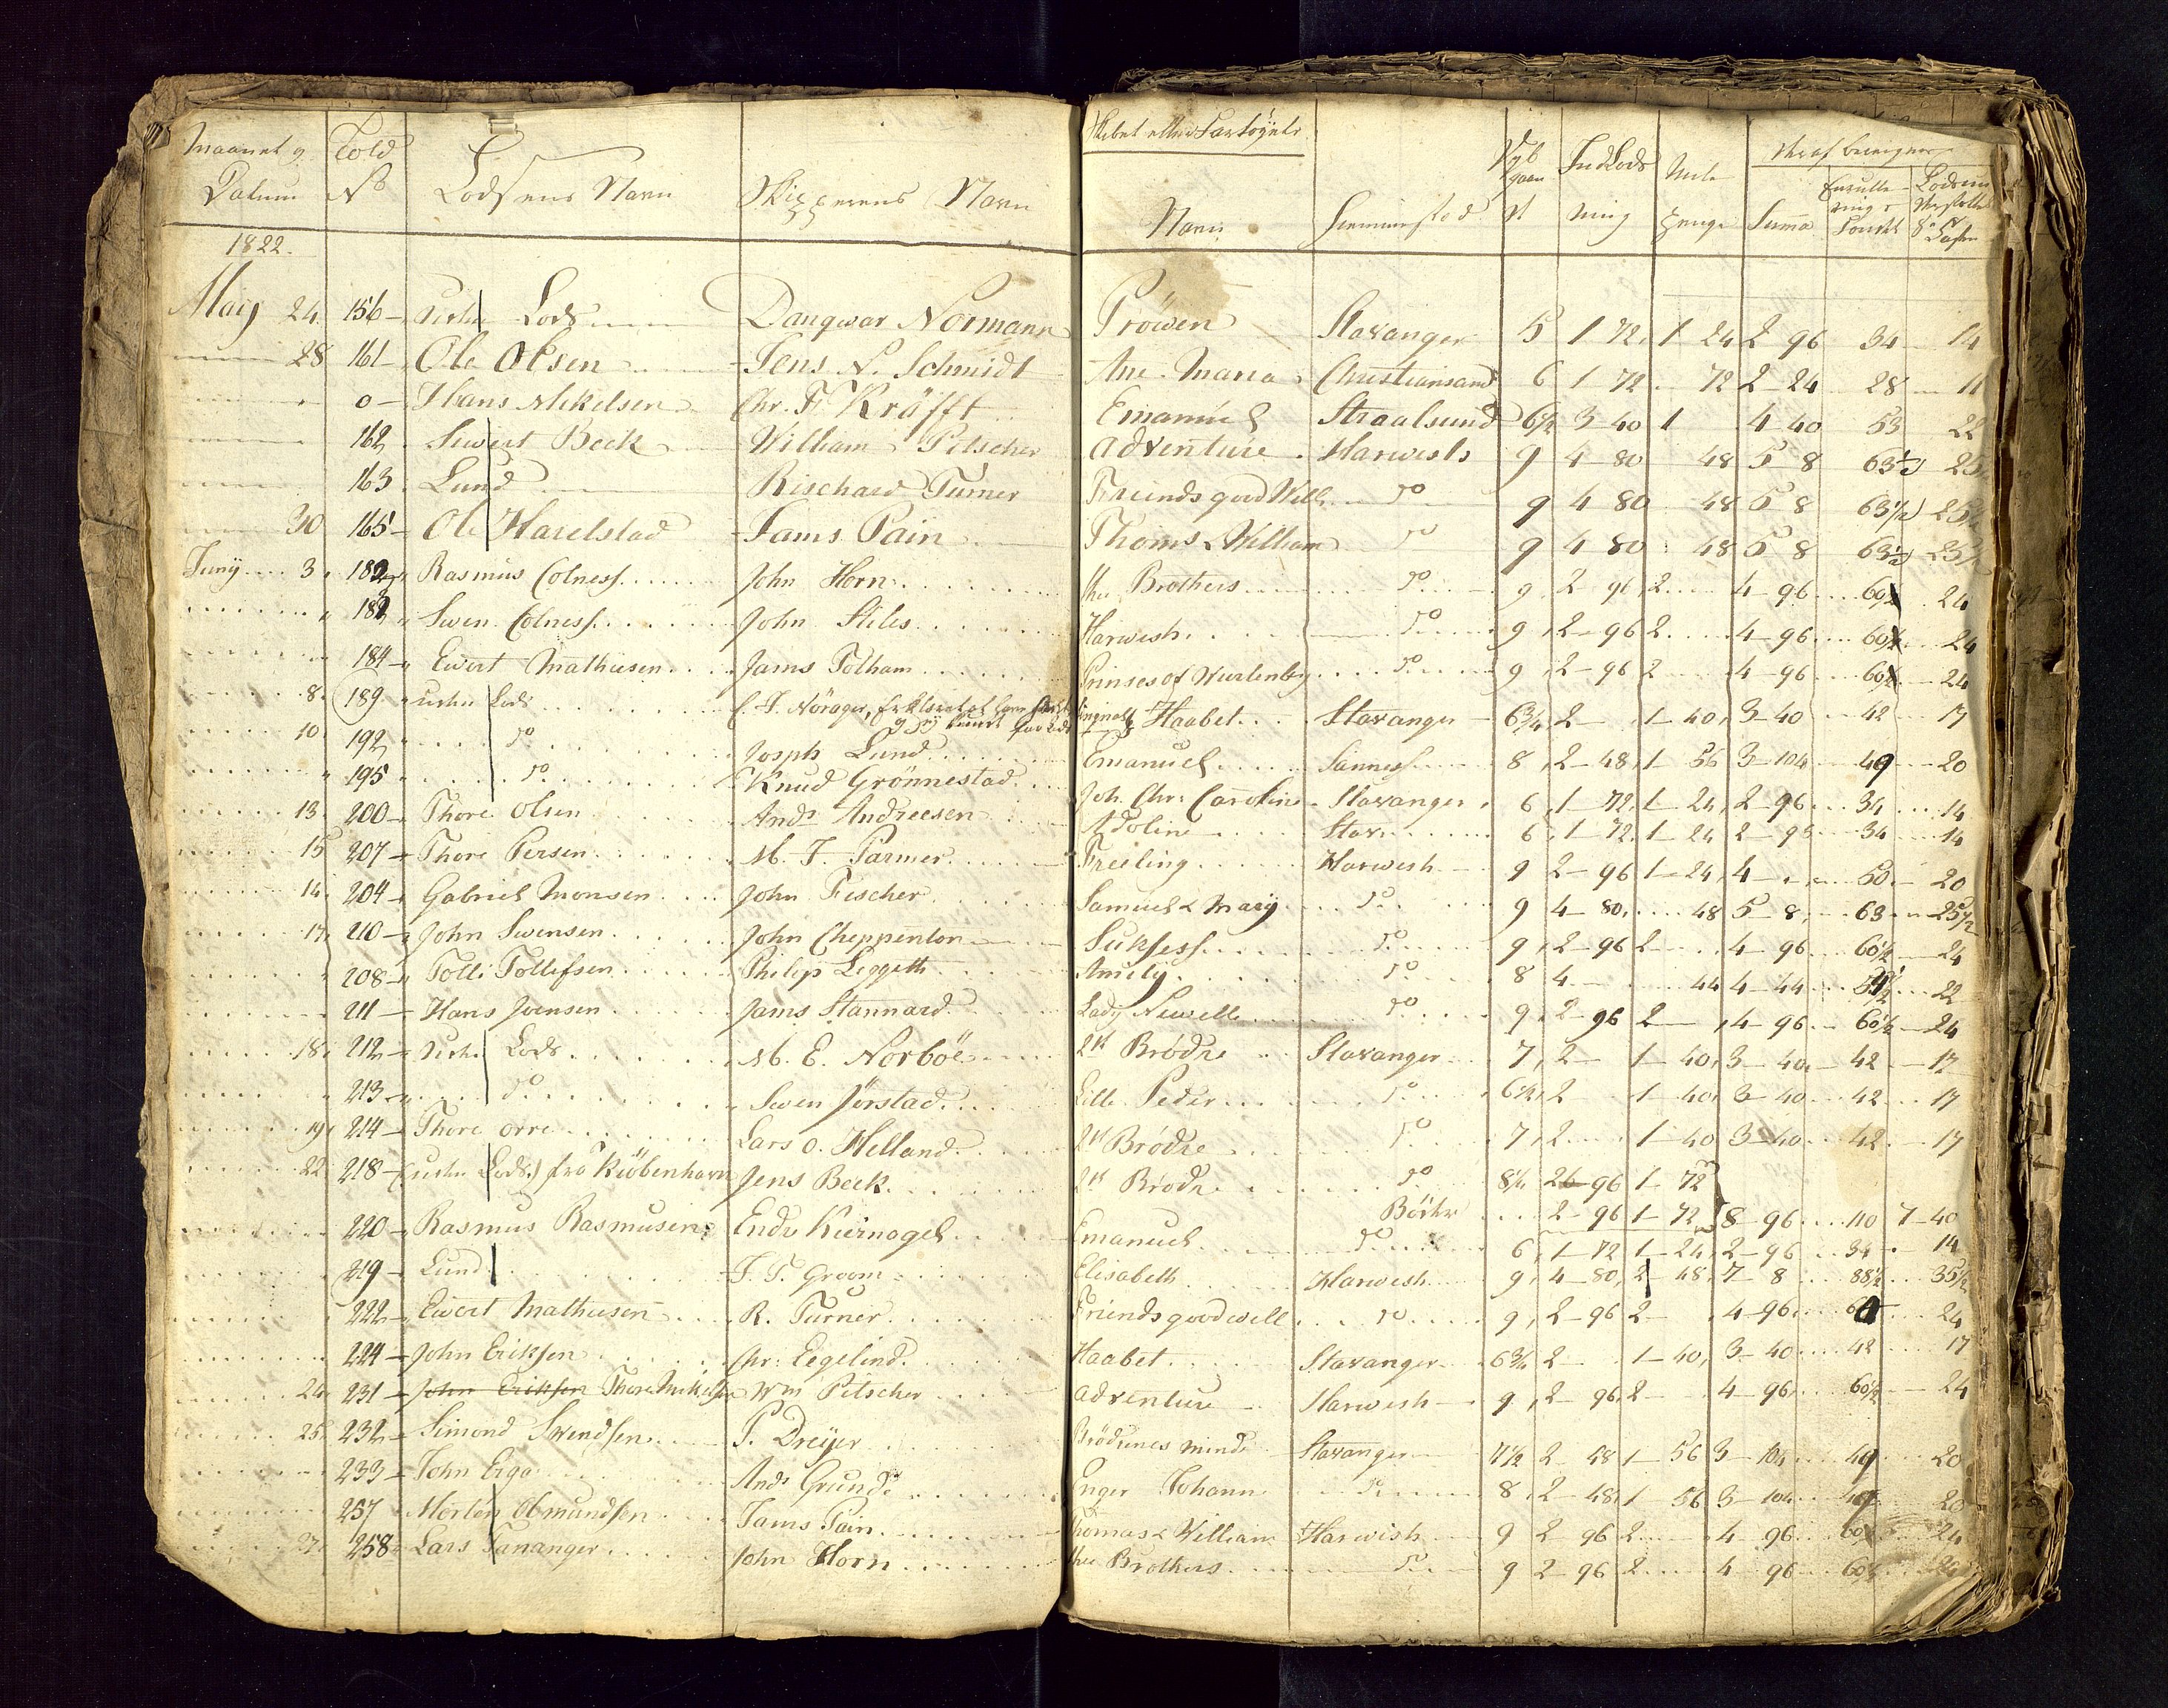 Maanet og Told Skibet eller Fartøyets Dyb gaan Indlods Mile Heraf beregnes
Datum No Lodsens Navn Skipperens Navn Navn Hiemmested ning penge Summa
1822.
May 24 156 uden Lods Dangwar Normann Pröwen Stavanger 5 1 72 1 24 2 96 34 14
28 161 Ole Olsen Jens N. Schmidt Ane Maria Christiansand 6 1 72 72 2 24 28 11
0 Hans Mikelsen Chr. F. Kröfft Emanuel Straalsund 6½ 3 40 1 4 40 53 22
162 Siwert Beck William Pitscher Adventure Harwish 9 4 80 48 5 8 63½ 25
163 Lund Rischard Turner Freinds good Will do 9 4 80 48 5 8 63½ 25½
30 165 Ole Harelstad Jams Pain Thoms & William do 9 4 80 48 5 8 63½ 25½
Juny 3 182 Rasmus Colness John Horn the Brothers do 9 2 96 2 4 96 60½ 24
Swen Colness John Stiles Harwish do 9 2 96 2 4 96 60½ 24
184 Ewert Mathiesen Jams Folham Prinses of Wurtenbg do 9 2 96 2 4 96 60½ 24
8 189 uden Lods C. F. Nörager, Haabet Stavanger 6¾ 2 1 40 3 40 42 17
10 192 do Josph Lund Emanuel Sannes 8 2 48 1 56 3 104 49 20
195 do Knud Grönnestad Joh. Chr: Caroline Stavanger 6 1 72 1 24 2 96 34 14
13 200 Thore Olsen Ands Andreesen Adoline Stav 6 1 72 1 24 2 96 34 14
15 207 Thore Persen M. T. Parmer Freiling Harwish 9 2 96 1 24 4 50 20
14 204 Gabriel Monsen John Fischer Samuel & Mary do 9 4 80 48 5 8 63 25½
17 210 John Swensen John Cheppenton Suksess do 9 2 96 2 4 96 60½ 24
208 Tolli Tollefsen Philip Leggett Amity do 8 4 44 4 44 22
211 Hans Joensen Jams Stannard Lady Newelle do 9 2 96 2 4 96 60½ 24
18 212 uden Lods M. E. Norböe 2de Brødre Stavanger 7 2 1 40 3 40 42 17
213 do Swen Jörstad Lille Peder do 6½ 2 1 40 3 40 42 17
19 214 Thore Orre Lars O. Helland 2de Brödre do 7 2 1 40 3 40 42 17
22 218 (uden Lods) fra Kiöbenhavn Jens Beck 2de Brödr do 8¼ 2 96 1 72
Böther 2 96 1 72 8 96 110 7 40
220 Rasmus Rasmusen Endr Kiernagel Emanuel do 6 1 72 1 24 2 96 34 14
219 Lund J. T. Groom Elisabeth Harwish 9 4 80 2 48 7 8 88½ 35½
222 Ewert Mathiesen R. Turner Friends good well do 9 2 96 2 4 96 24
224 John Eriksen Chr: Eegelind Haabet Stavanger 6¾ 2 1 40 3 40 42 17
24 231 John Eriksen Thore Mikelsen Wm Pitscher Adventure Harwish 9 2 96 2 4 96 60½ 24
25 232 Simond Swendsen P. Dreyer Brödrenes minde Stavanger 7½ 2 48 1 56 3 104 49 20
233 John Erga Ands Grunde Enger Johann do 8 2 48 1 56 3 104 49 20
257 Morten Obmundsen Jams Pain Thomas & William Harwish 9 2 96 2 4 96 60½ 24
27 258 Lars Tananger John Horn the Brothers do 9 2 96 2 4 96 60½ 24